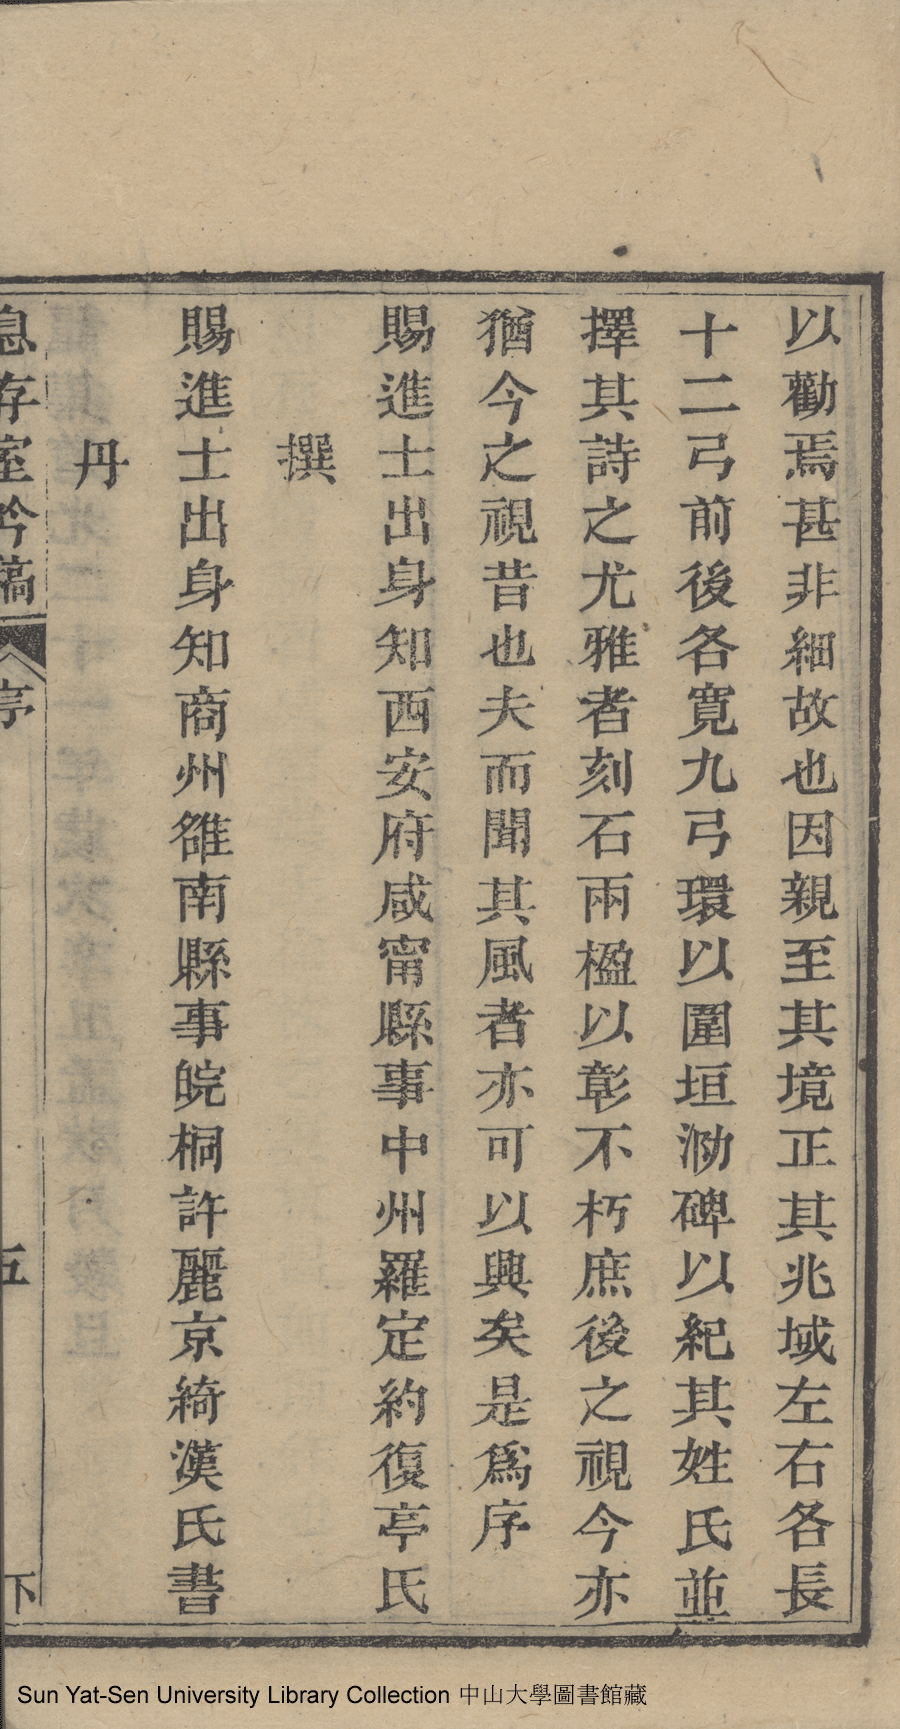 以勸焉甚非細故也因親至其境正其兆域左右各長
十二弓前後各寬九弓環以圍垣泐碑以紀其姓氏並
擇其詩之尤雅者刻石兩楹以彰不朽庶後之視今亦
猶今之視昔也夫而聞其風者亦可以興矣是爲序
賜進士出身知西安府咸甯縣事中州羅定約復亭氏
撰
賜進士出身知商州雒南縣事皖桐許麗京綺漢氏書
丹
息存室吟稿 序 五 下
Sun Yat-Sen University Library Collection 中山大學圖書館藏